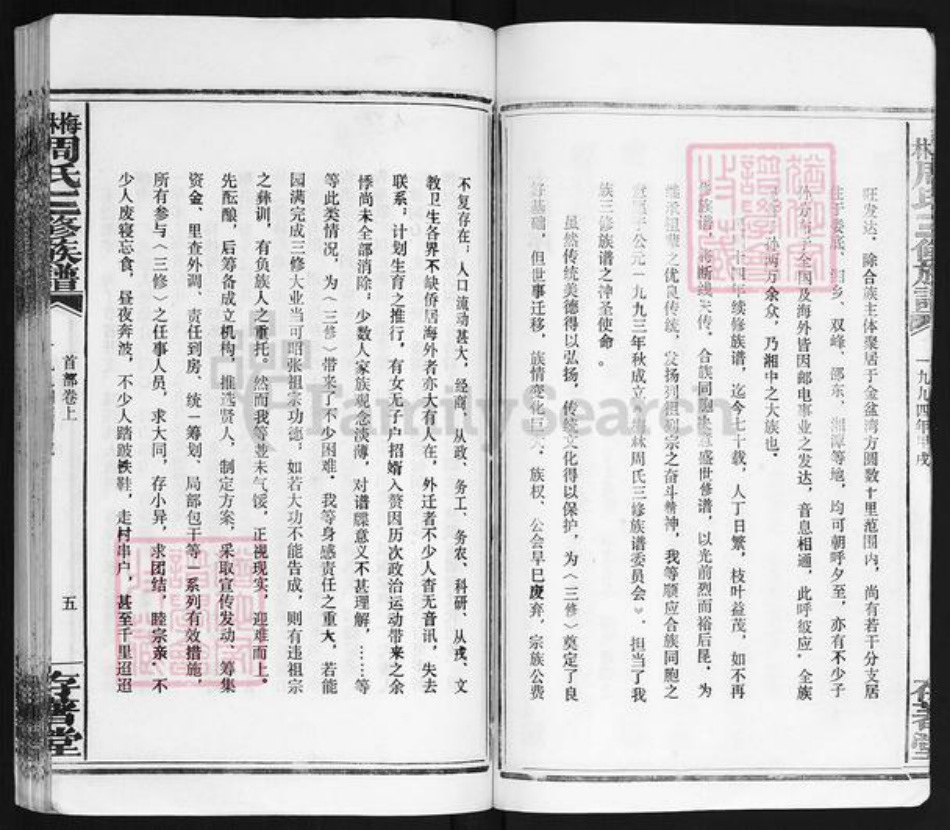 旺发达，除合族主体聚居于金盆湾方圆数十里范围内，尚有若干分支居
娄底、湘乡、双峰、邵东、湘潭等地，均可朝呼夕至，亦有不少子
全国及海外皆因邮电事业之发达，音息相通，此呼彼应。全族
孙两万余众，乃湘中之大族也。
四年续修族谱，迄今七十载，人丁日繁，枝叶益茂，如不再
修族谱，将断线失传，合族同胞 盛世修谱，以光前烈而裕后昆，为
继承祖辈之优良传统，发扬列祖列宗之奋斗精神，我等顺应合族同胞之
于公元一九九三年秋成立 梅林周氏三修族谱委员会》，担当了我
族三修族谱之神圣使命。
虽然传统美德得以弘扬，传统文化得以保护，为〈三修〉奠定了良
好基础，但世事迁移，族情变化巨大，族权、公会早已废弃，宗族公费
不复存在；人口流动甚大，经商、从政、务工、务农、科研、从戎、文
教卫生各界不缺侨居海外者亦大有人在，外迁者不少人杳无音讯，失去
联系；计划生育之推行，有女无子户招婿入赘因历次政治运动带来之余
悸尚未全部消除，少数人家族观念淡薄，对谱牒意义不甚理解，……等
等此类情况，为〈三修〉带来了不少困难。我等身感责任之重大，若能
圆满完成三修大业当可昭张祖宗功德，如若大功不能告成，则有违祖宗
之彝训，有负族人之重托。然而我等并未气馁，正视现实，迎难而上。
先酝酿，后筹备成立机构，推选贤人，制定方案，采取宣传发动、筹集
资金、里查外调、责任到房、统一筹划、局部包干等一系列有效措施。
所有参与〈三修〉之任事人员，求大同，存小异，求团结，睦宗亲，不
少人废寝忘食，昼夜奔波，不少人踏跛铁鞋，走村串户，甚至千里迢迢
梅林周氏三修族谱
首部卷上
五
存著堂
一九九四年甲戌
存著堂
FamilySearch